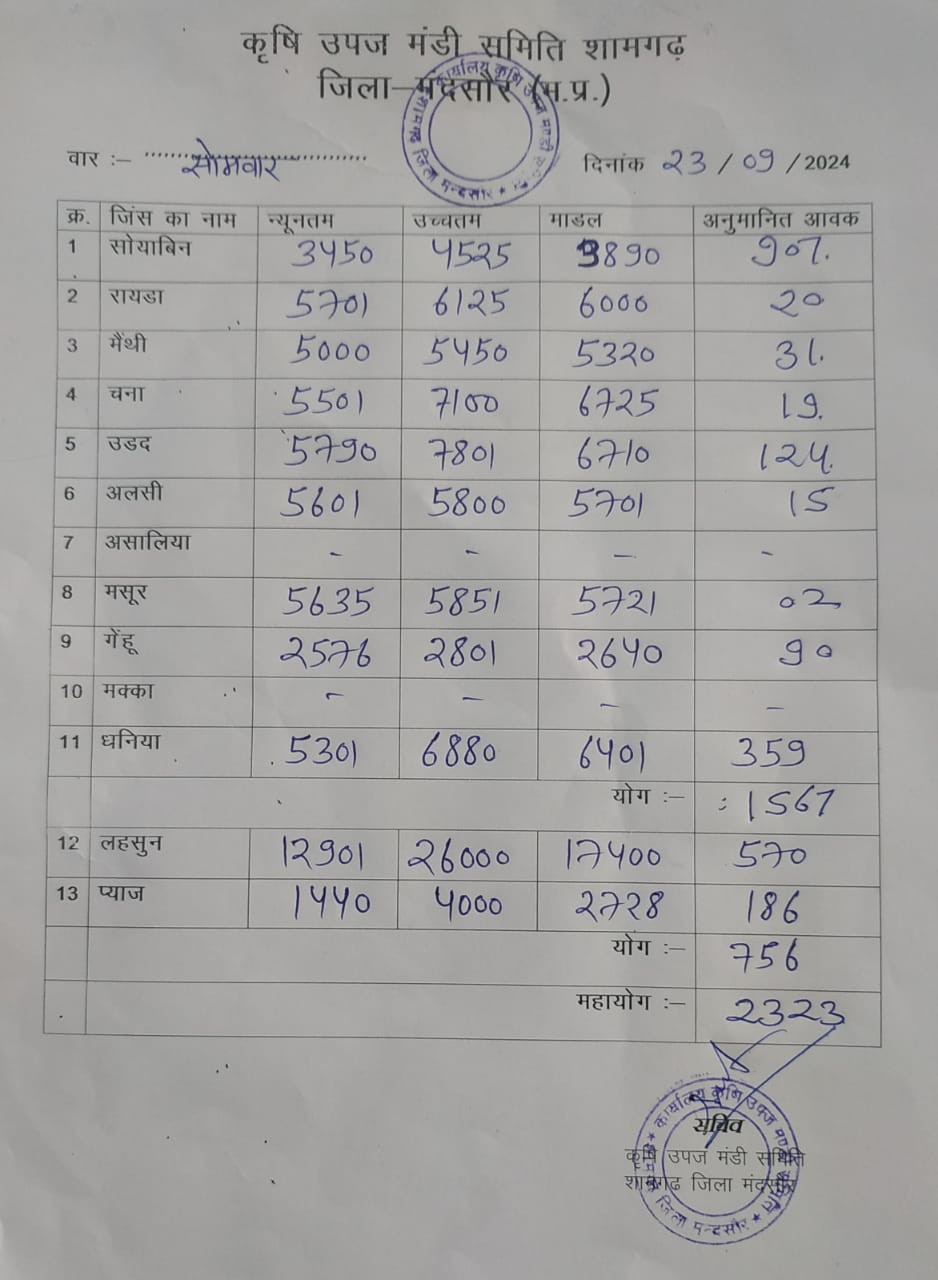 कृषि उपज मंडी समिति शामगढ़
जिला–मंदसौर (म.प्र.)
कार्यालय कृषि उपज मण्डी
शामगढ़ जिला मन्दसौर
वार :– सोमवार दिनांक 23/09/2024
क्र. जिंस का नाम न्यूनतम उच्चतम माडल अनुमानित आवक
1 सोयाबिन 3450 4525 3890 907.
2 रायडा 5701 6125 6000 20
3 मैंथी 5000 5450 5320 31.
4 चना 5501 7100 6725 19.
5 उडद 5790 7801 6710 124.
6 अलसी 5601 5800 5701 15
7 असालिया - - - -
8 मसूर 5635 5851 5721 02
9 गेंहू 2576 2801 2640 90
10 मक्का - - - -
11 धनिया 5301 6880 6401 359
योग :– 1567
12 लहसुन 12901 26000 17400 570
13 प्याज 1440 4000 2728 186
योग :– 756
महायोग :– 2323
कार्यालय कृषि उपज मण्डी समिति
सचिव
कृषि उपज मंडी समिति
शामगढ जिला मंदसौर
जिला मन्दसौर